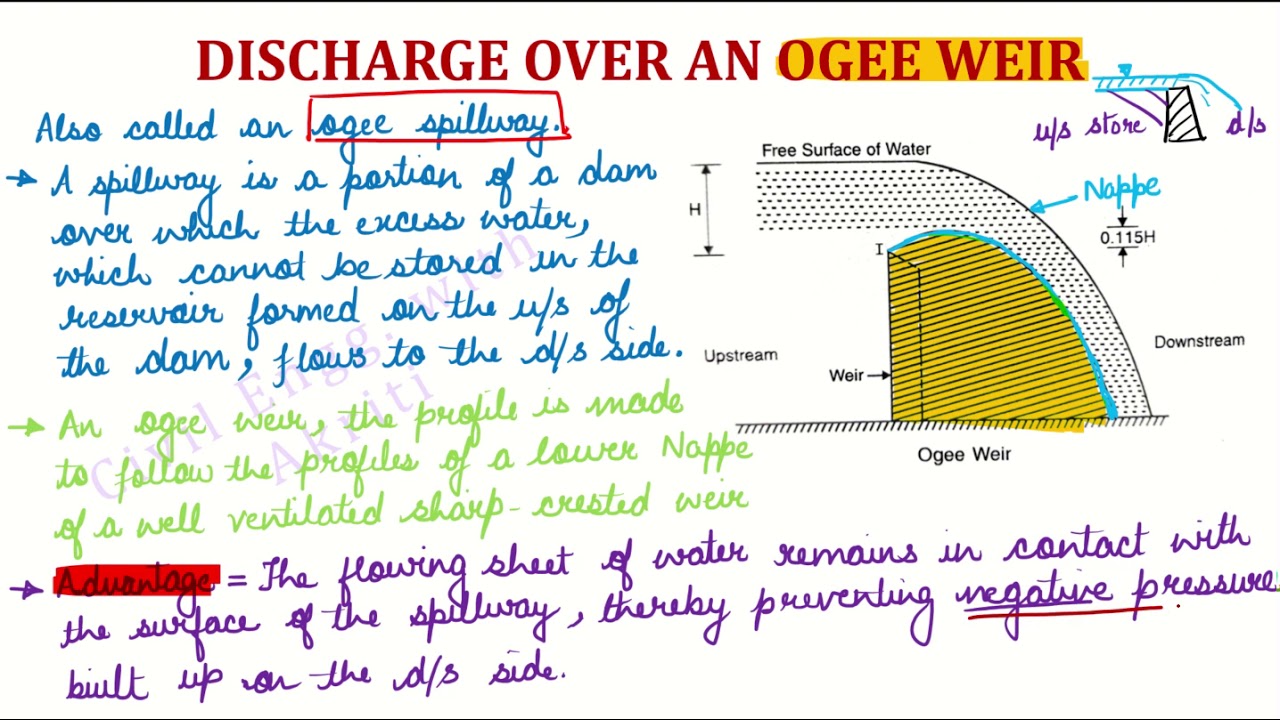 DISCHARGE OVER AN OGEE WEIR
Also called an ogee spillway.
→ A spillway is a portion of a dam
over which the excess water,
which cannot be stored in the
reservoir formed on the u/s of
the dam, flows to the d/s side.
→ An ogee weir, the profile is made
to follow the profiles of a lower Nappe
of a well ventilated sharp-crested weir
→ Advantage = The flowing sheet of water remains in contact with
the surface of the spillway, thereby preventing negative pressure
built up on the d/s side.
u/s store
d/s
Free Surface of Water
Nappe
H
0.115H
I
Upstream
Downstream
Weir
Ogee Weir
Civil Engg. with
Akriti